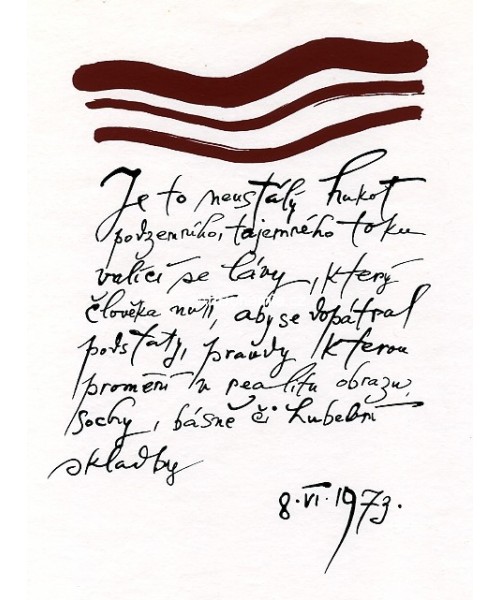 Je to neustálý hukot
podzemního, tajemného toku
valící se lávy, který
člověka nutí, aby se dopátral
podstaty, pravdy kterou
promění v realitu obrazu,
sochy, básně či hudební
skladby
8.VI.1973.